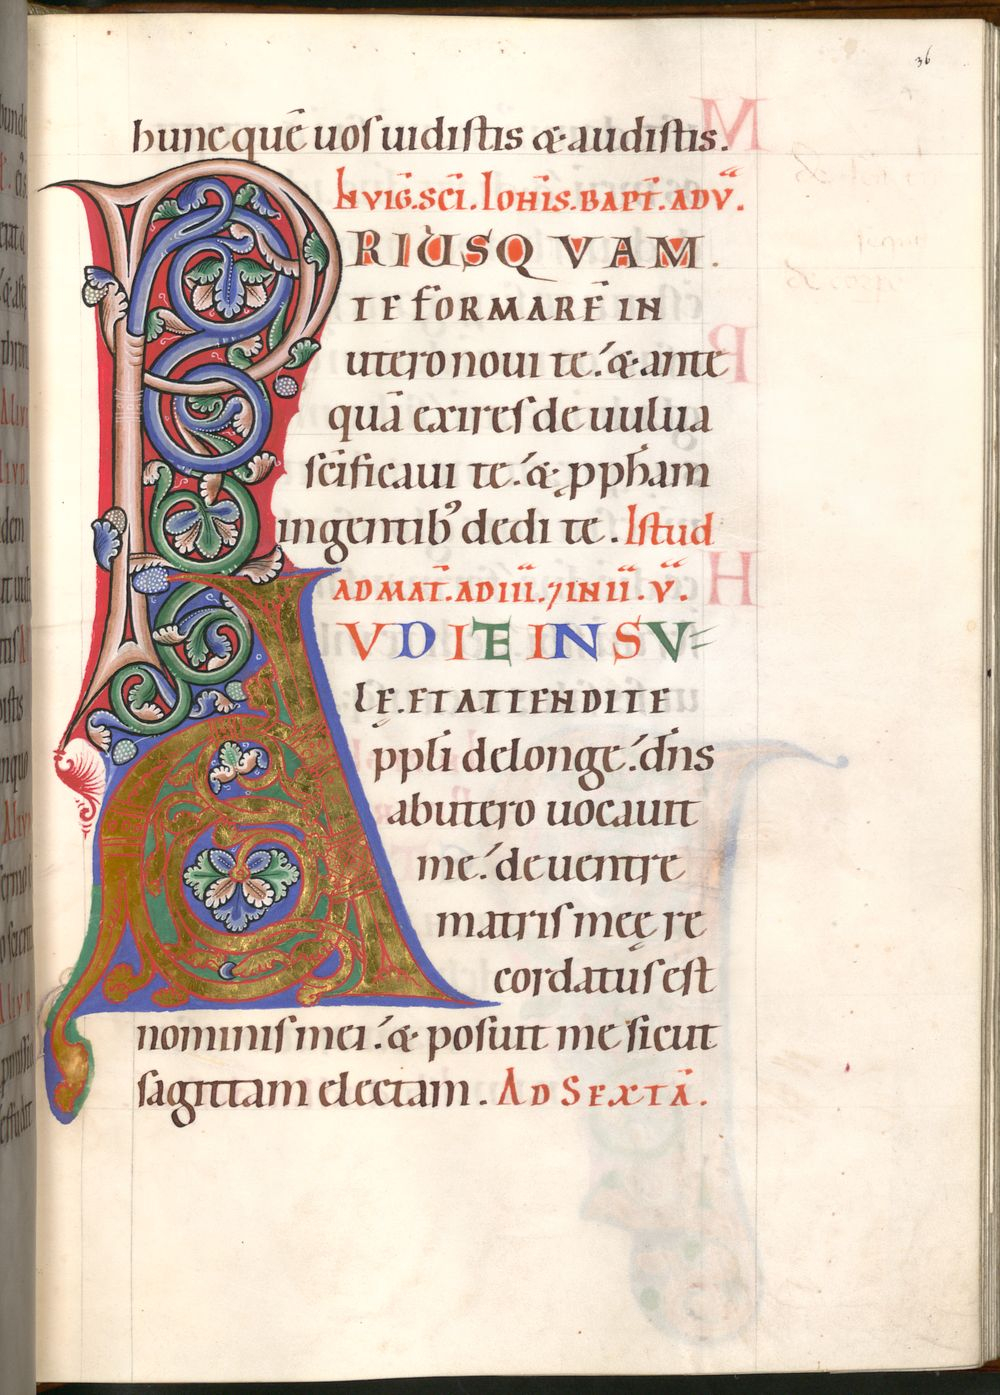 36
hunc quē uos uidistis & audistis.
IN VIG. SCĪ. IOHĪS. BAPT̄. AD V̄.
PRIUSQVAM.
TE FORMARĒ IN
utero noui te: & ante
quā exires de uulua
scīficaui te: & ppham
in gentib' dedi te. Istud
AD MAT̄. AD III. 7 IN II. V.
AVDITE INSV=
LĘ. ET ATTENDITE
ppli de longe: dn̄s
ab utero uocauit
me: de uentre
matris meę re
cordatus est
nominis mei: & posuit me sicut
sagittam electam. AD SEXTĀ.